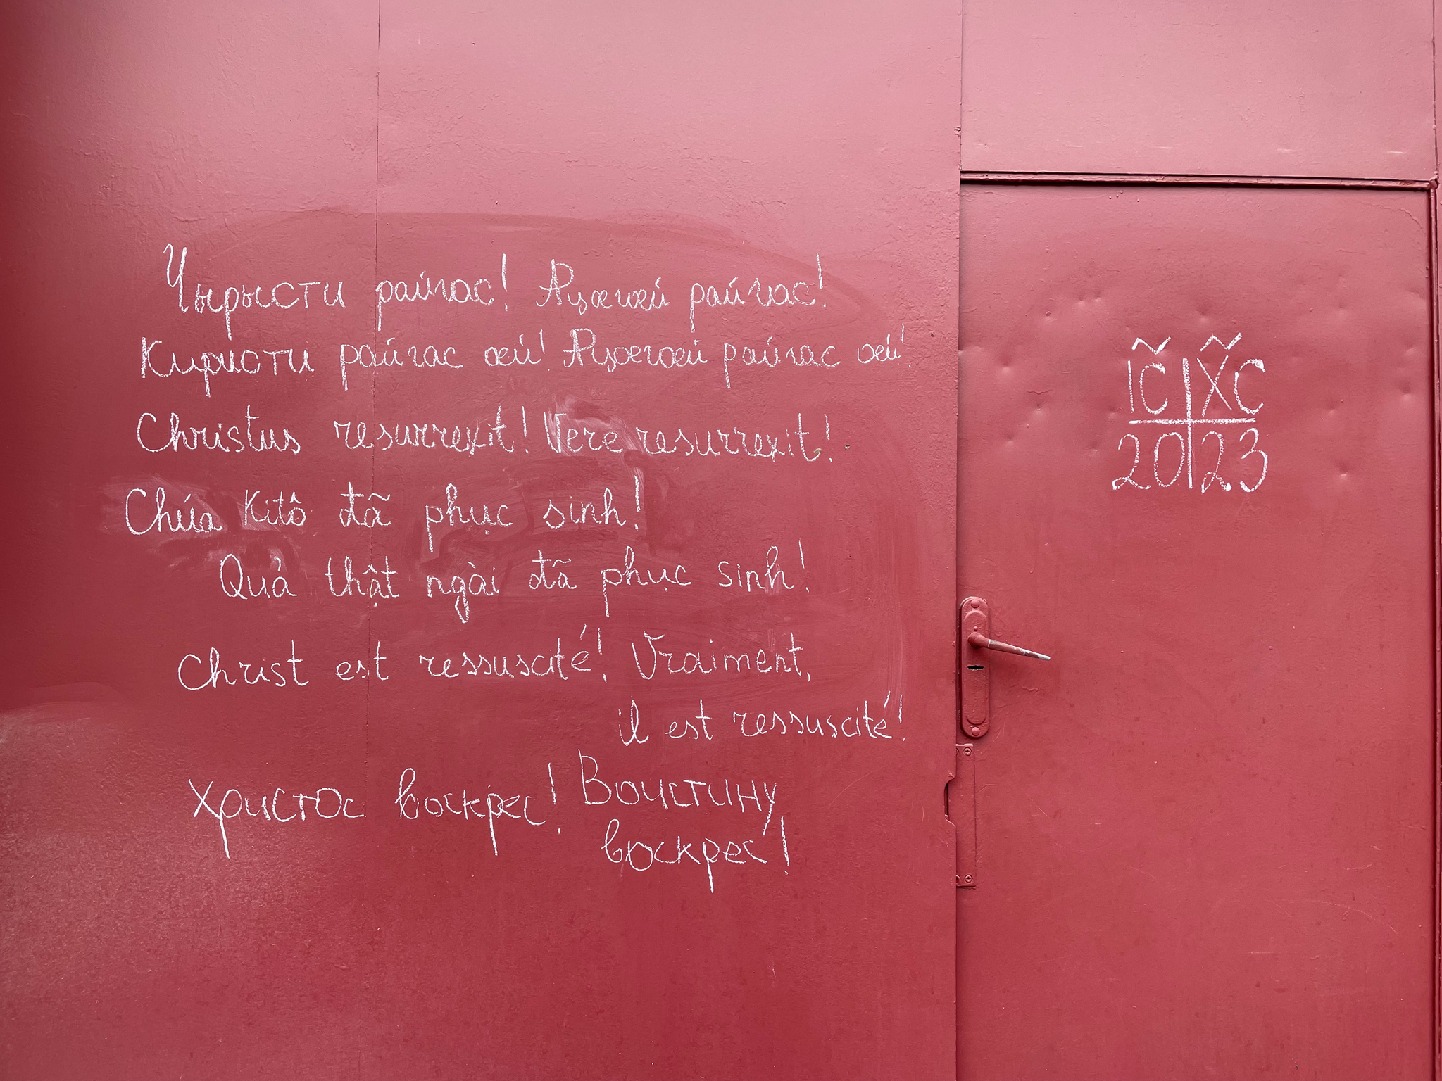 Чырысти райгас! Æцæгæй райгас!
Киристи райгас æй! Æцæгæй райгас æй!
Christus resurrexit! Vere resurrexit!
Chúa Kitô đã phục sinh!
Quả thật ngài đã phục sinh!
Christ est ressuscité! Vraiment,
il est ressuscité!
Христос воскрес! Воистину
воскрес!
IC̃ X̃C
20 23